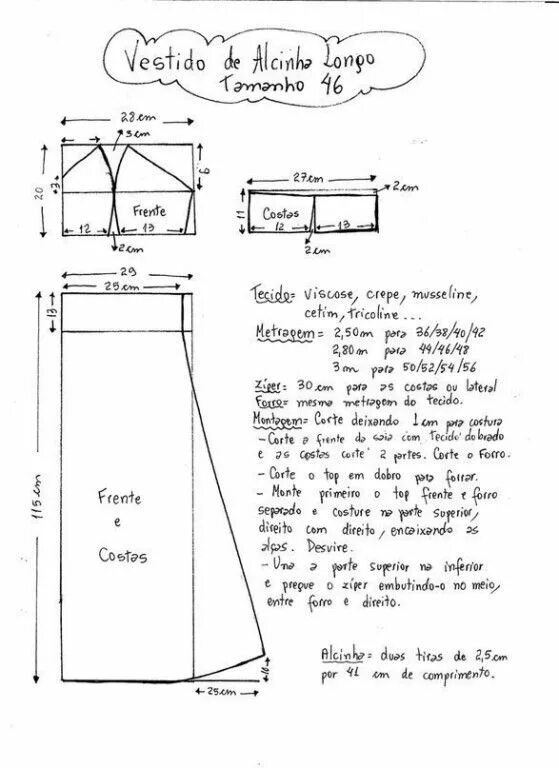 Vestido de Alcinha Longo
Tamanho 46
28 cm
3 cm
20
3
9
Frente
12
13
2 cm
27 cm
2 cm
11
Costas
12
13
2 cm
29
25 cm
13
115 cm
Frente
e
Costas
10
25 cm
Tecido = viscose, crepe, musseline,
cetim, tricoline...
Metragem = 2,50 m para 36/38/40/42
2,80 m para 44/46/48
3 m para 50/52/54/56
Zíper = 30 cm para as costas ou lateral
Forro = mesma metragem do tecido.
Montagem = Corte deixando 1 cm para costura
- Corte a frente da saia com Tecido dobrado
e as costas corte 2 partes. Corte o Forro.
- Corte o top em dobro para forrar.
- Monte primeiro o top frente e forro
separado e costure na parte superior,
direito com direito, encaixando as
alças. Desvire.
- Una a parte superior na inferior
e pregue o zíper embutindo-o no meio,
entre forro e direito.
Alcinha = duas tiras de 2,5 cm
por 41 cm de comprimento.